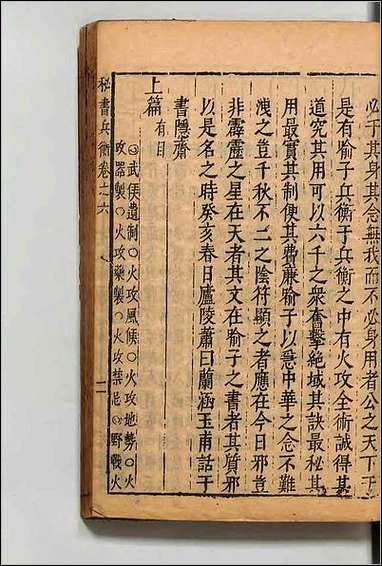 必于其身其念無我而不必身用者公之天下于
是有喻子兵衡于兵衡之中有火攻全術誠得其
道究其用可以六千之衆奮擊絶域其訣最秘其
用最實其制使其費廉喻子以急中華之念不難
洩之豈千秋不二之陰符顯之者應在今日邪豈
非霹靂之星在天者其文在喻子之書者其質邪
以是名之時癸亥春日廬陵蕭曰蘭涵玉甫話于
書隱齋
上篇
有目
○武侯遺制○火攻風候○火攻地勢○火
攻器製○火攻藥製○火攻禁忌○野戰火
秘書兵衡卷之六
二